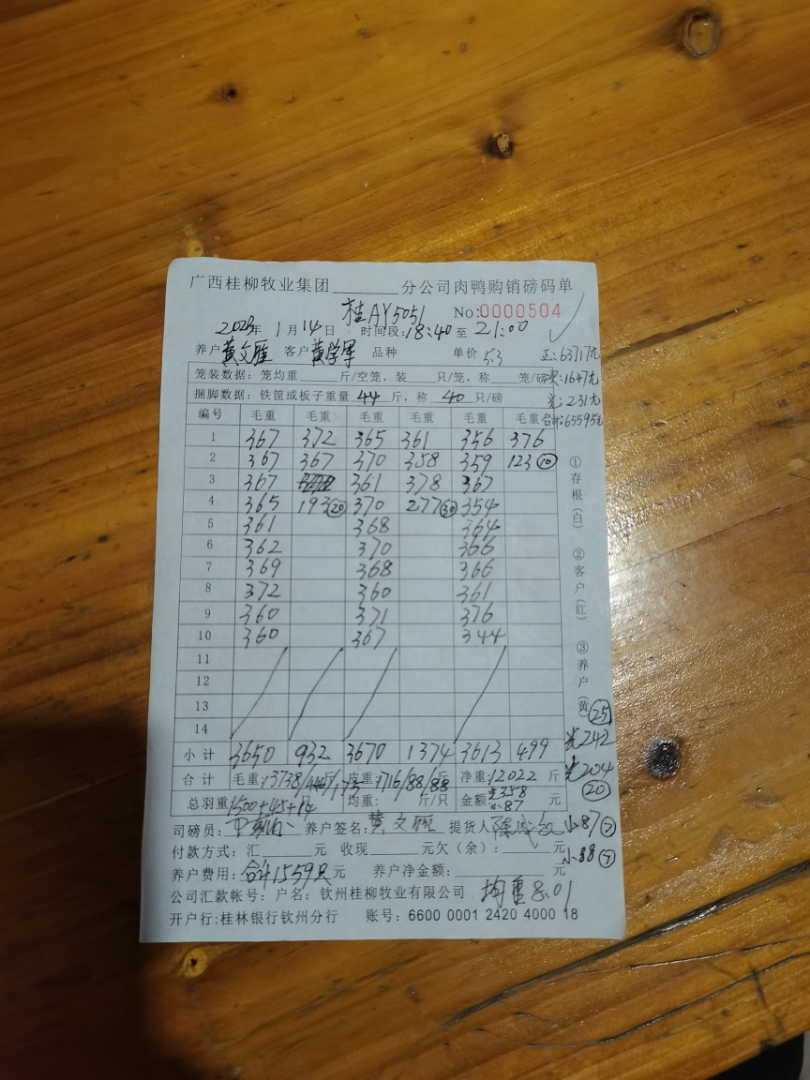 广西桂柳牧业集团______分公司肉鸭购销磅码单
桂AY5051 No:0000504
2023年 1月14日 时间段:18:40至21:00
养户 黄文雁 客户 黄学军 品种 单价 5.3 正:63717元
笼装数据: 笼均重____斤/空笼, 装____只/笼, 称____笼/磅 1647元
捆脚数据: 铁筐或板子重量 44 斤, 称 40 只/磅 光:231元
编号 毛重 毛重 毛重 毛重 毛重 毛重 合计:65595元
1 367 372 365 361 356 376
2 367 367 370 358 359 123 ⑩
3 367 361 378 367
4 365 193 ⑳ 370 277 ㉚ 354
5 361 368 364
6 362 370 366
7 369 368 366
8 372 360 361
9 360 371 376
10 360 367 344
11
12
13
14
小计 3650 932 3670 1374 3613 499
合计 毛重:13738/444/175 皮重:1716/88/88斤 净重:12022斤
总羽重 1500+45+14 均重: 斤/只 金额 光358 小87 元
司磅员: 养户签名: 黄文 提货人
付款方式: 汇____元 收现____元欠(余): ____元
养户费用: 合计1559只元 养户净金额: ____元
公司汇款帐号: 户名: 钦州桂柳牧业有限公司 均重8.01
开户行:桂林银行钦州分行 账号: 6600 0001 2420 4000 18
①存根(白) ②客户(红) ③养户(黄)
㉕
光242
光204
⑳
小87 ⑦
小88 ⑦